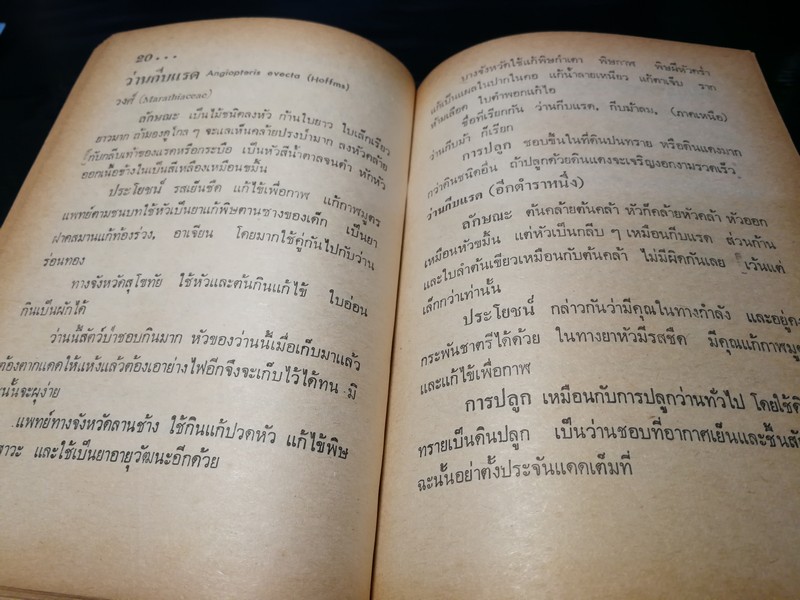 20...
ว่านกีบแรด Angiopteris evecta (Hoffms)
วงศ์ (Marathiaceae)
ลักษณะ เป็นไม้ชนิดลงหัว ก้านใบยาว ใบเล็กเรียว
ยาวมาก ถ้ามองดูไกล ๆ จะแลเห็นคล้ายปรงป่ามาก ลงหัวคล้าย
กับกลีบเท้าของแรดหรือกระบือ เป็นหัวสีน้ำตาลจนดำ หักหัว
ออกเนื้อข้างในเป็นสีเหลืองเหมือนขมิ้น
ประโยชน์ รสเย็นชืด แก้ไข้เพื่อกาฬ แก้กาฬมูตร
แพทย์ตามชนบทใช้หัวเป็นยาแก้พิษตานซางของเด็ก เป็นยา
ฝาดสมานแก้ท้องร่วง, อาเจียน โดยมากใช้คู่กันไปกับว่าน
ร่อนทอง
ทางจังหวัดสุโขทัย ใช้หัวและต้นกินแก้ไข้ ใบอ่อน
กินเป็นผักได้
ว่านนี้สัตว์ป่าชอบกินมาก หัวของว่านนี้เมื่อเก็บมาแล้ว
ต้องตากแดดให้แห้งแล้วต้องเอาย่างไฟอีกจึงจะเก็บไว้ได้ทน มิ
นนั้นจะผุง่าย
แพทย์ทางจังหวัดลานช้าง ใช้กินแก้ปวดหัว แก้ไข้พิษ
าวะ และใช้เป็นยาอายุวัฒนะอีกด้วย
บางจังหวัดใช้แก้พิษกำเดา พิษกาฬ พิษฝีหัวคว่ำ
แก้เป็นแผลในปากในคอ แก้น้ำลายเหนียว แก้ตาเจ็บ ราก
ห้ามเลือด ใบตำพอกแก้ไอ
ชื่อที่เรียกกัน ว่านกีบแรด, กีบม้าลม, (ภาคเหนือ)
ว่านกีบม้า ก็เรียก
การปลูก ชอบขึ้นในที่ดินปนทราย หรือดินแดงมาก
กว่าดินชนิดอื่น ถ้าปลูกด้วยดินแดงจะเจริญงอกงามรวดเร็ว
ว่านกีบแรด (อีกตำราหนึ่ง)
ลักษณะ ต้นคล้ายต้นคล้า หัวก็คล้ายหัวคล้า หัวออก
เหมือนหัวขมิ้น แต่หัวเป็นกลีบ ๆ เหมือนกีบแรด ส่วนก้าน
และใบลำต้นเขียวเหมือนกับต้นคล้า ไม่มีผิดกันเลย เว้นแต่
เล็กกว่าเท่านั้น
ประโยชน์ กล่าวกันว่ามีคุณในทางกำลัง และอยู่คง
กระพันชาตรีได้ด้วย ในทางยาหัวมีรสชืด มีคุณแก้กาฬมู
และแก้ไข้เพื่อกาฬ
การปลูก เหมือนกับการปลูกว่านทั่วไป โดยใช้ดิ
ทรายเป็นดินปลูก เป็นว่านชอบที่อากาศเย็นและชื้นสั
ฉะนั้นอย่าตั้งประจันแดดเต็มที่